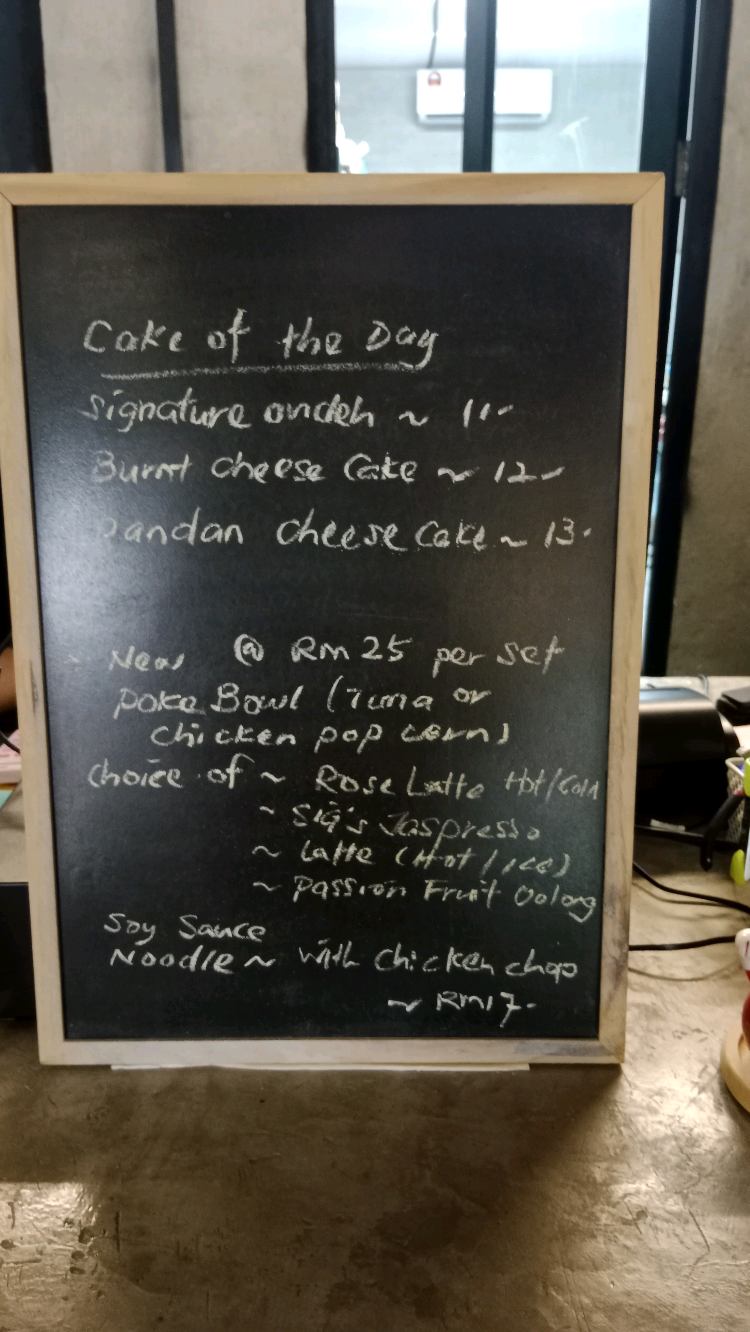 Cake of the Day
Signature ondeh ~ 11-
Burnt cheese Cake ~ 12-
Pandan cheese Cake ~ 13-
New @ Rm 25 per set
Poke Bowl (Tuna or
chicken pop corn)
choice of ~ Rose Latte Hot/Cold
~ Sig's Jaspresso
~ Latte (Hot / ice)
~ Passion Fruit Oolong
Soy Sauce
Noodle ~ with chicken chop
~ Rm17-